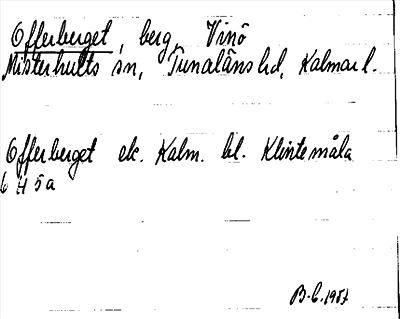 Offerberget, berg, Vinö
Misterhults sn, Tunaläns hd, Kalmar l.
Offerberget ek. Kalm. bl. Klintemåla
6 H 5a
B-C. 1957